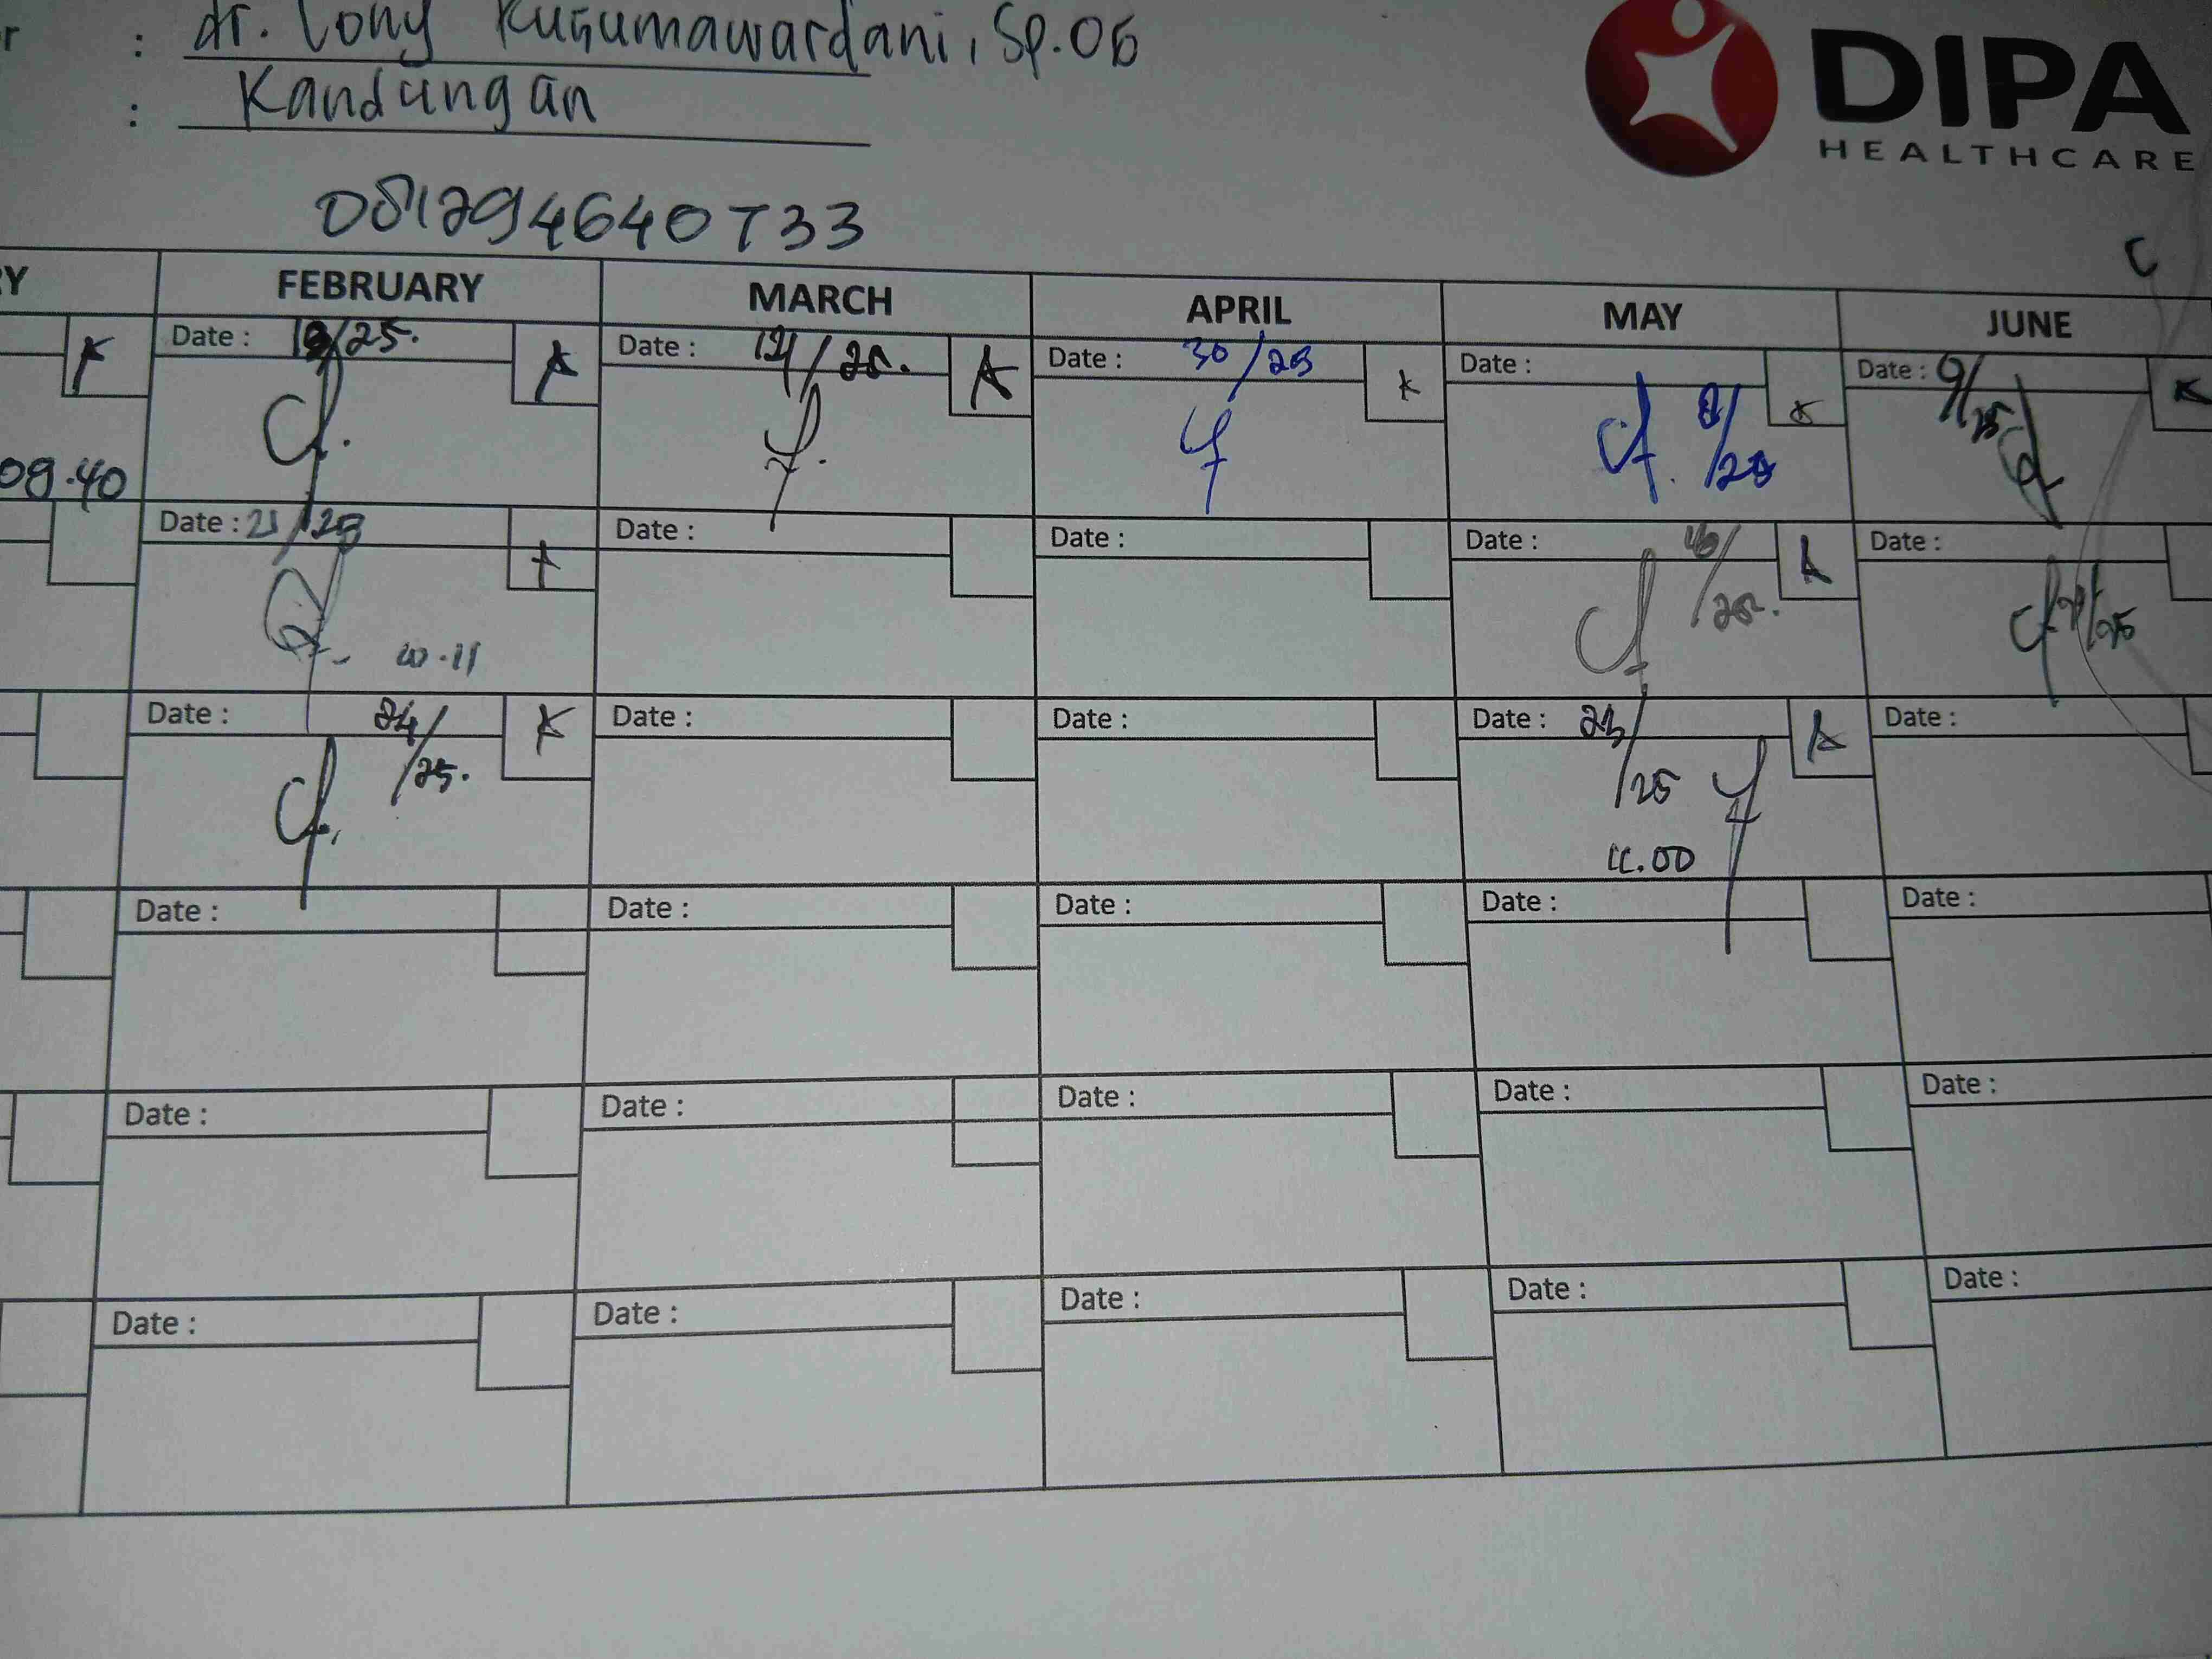 r : dr. Cony Kusumawardani, Sp.OG
: Kandungan
DIPA
HEALTHCARE
081294640733
RY FEBRUARY MARCH APRIL MAY JUNE
Date : /25. Date : Date : 30/25 Date : Date : 9/25
09.40
Date : 21/25 Date : Date : Date : Date :
Date : 24/25. Date : Date : Date : 23/25 Date :
Date : Date : Date : Date : Date :
Date : Date : Date : Date : Date :
Date : Date : Date : Date : Date :